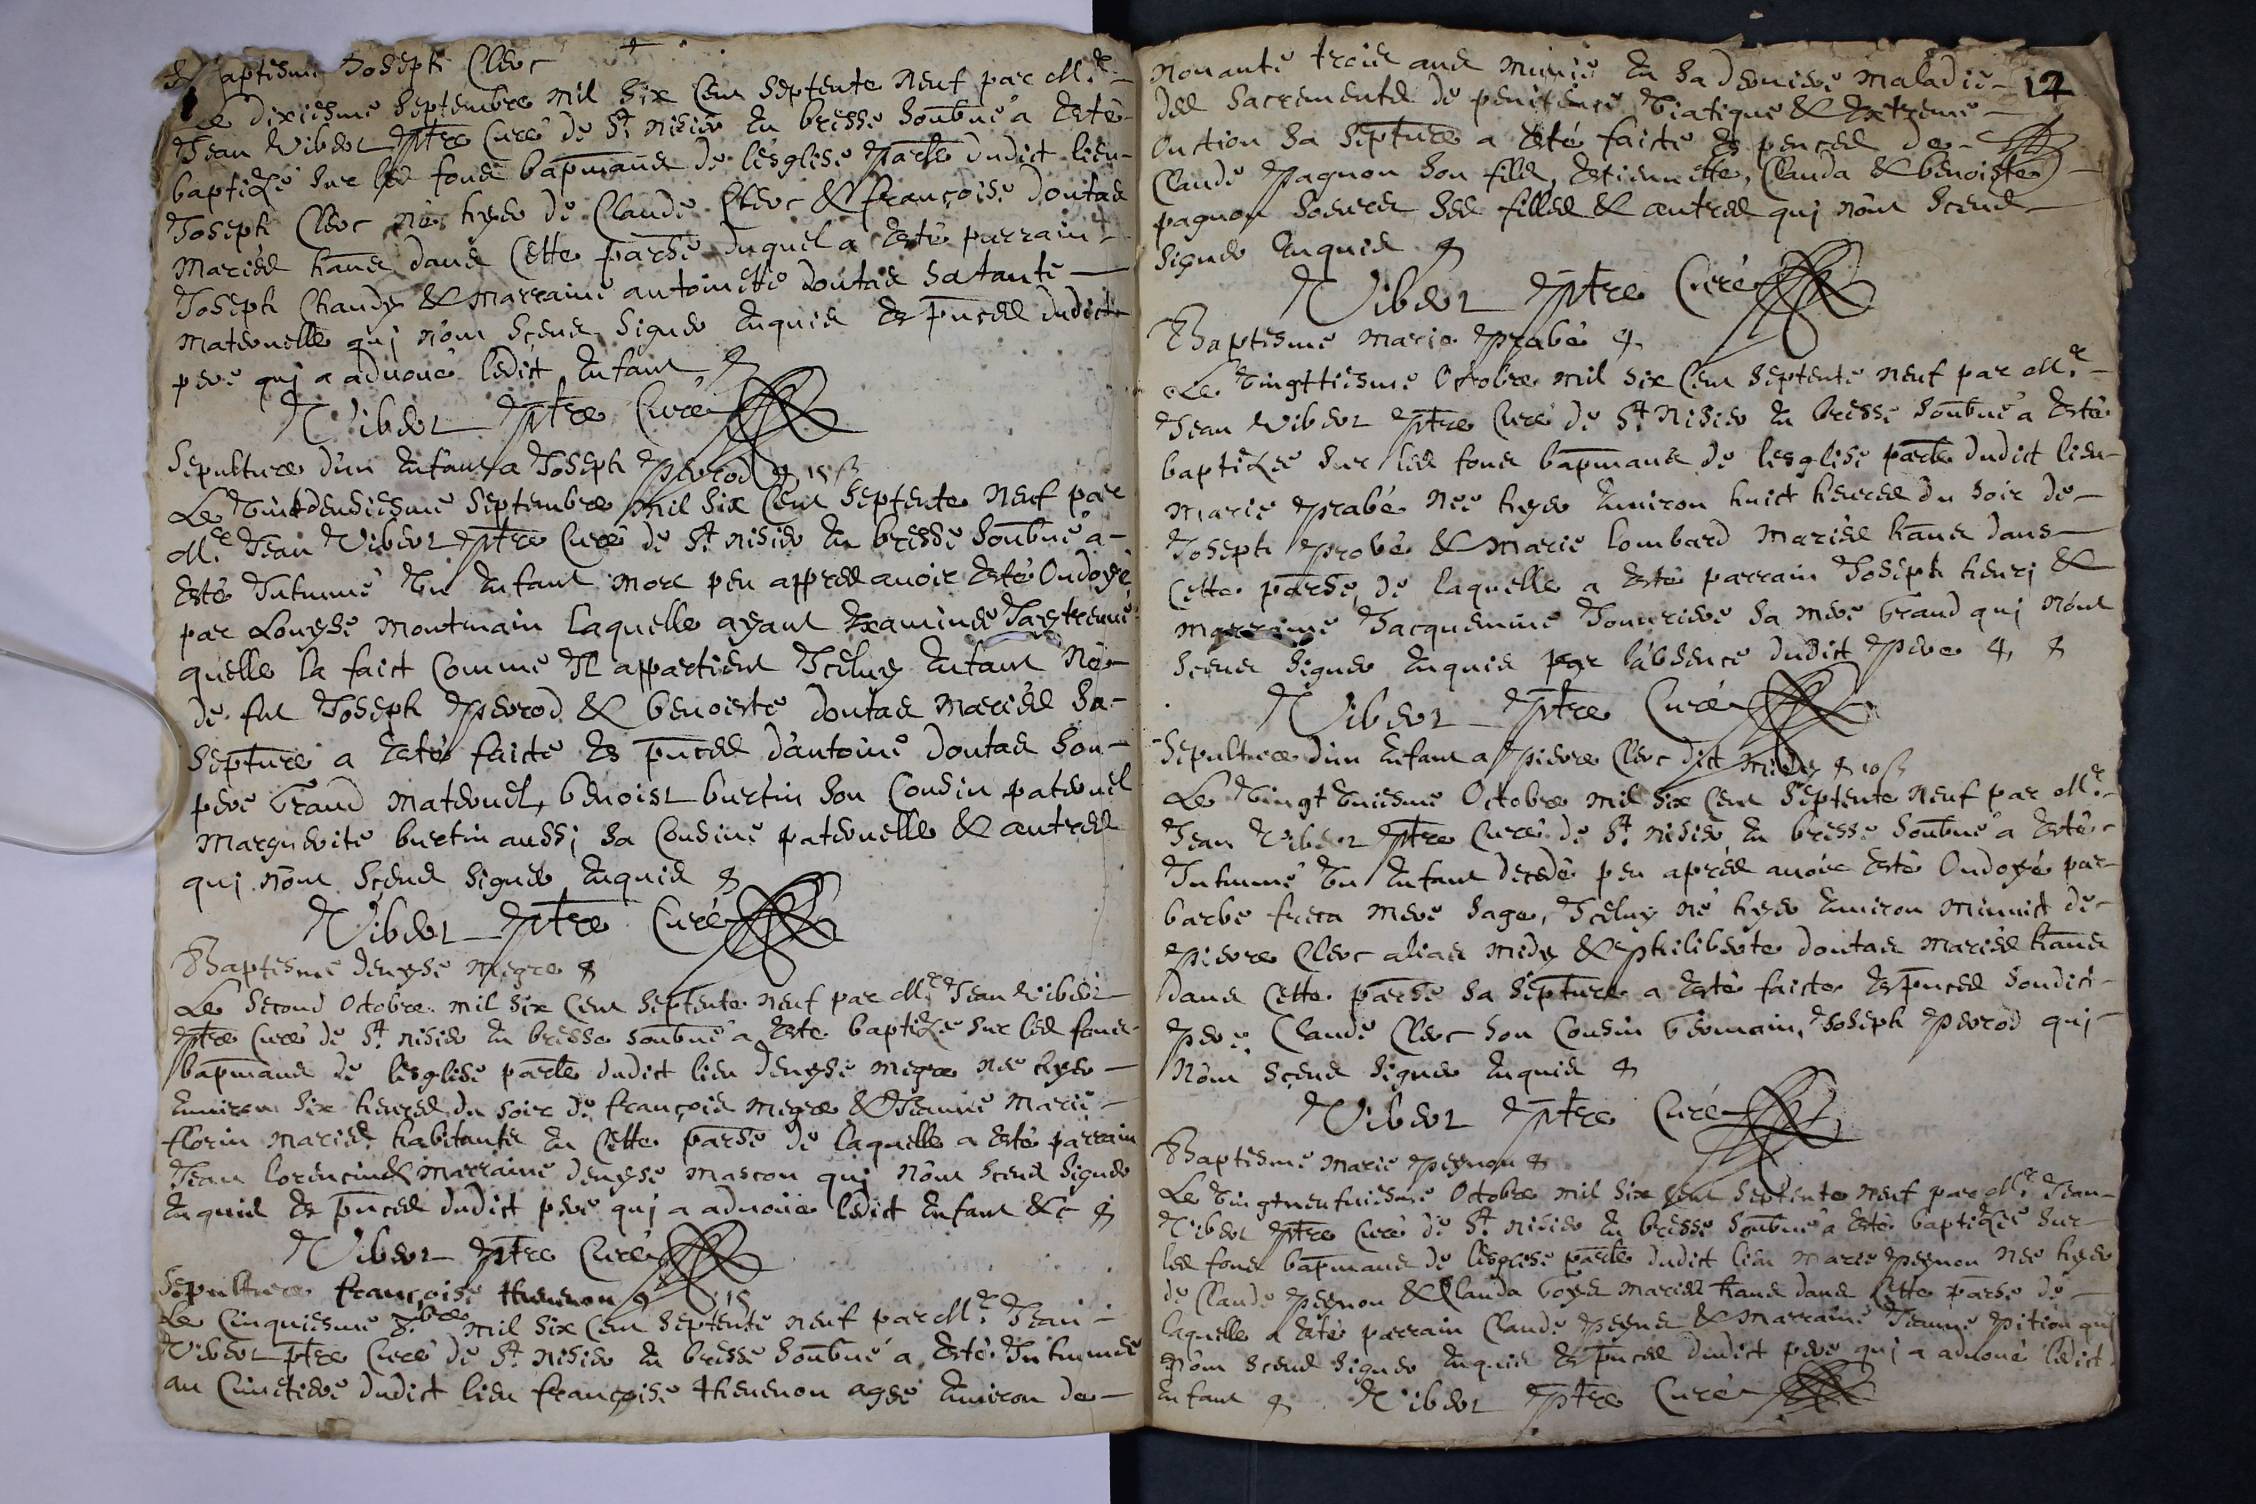 Baptisme Joseph Clerc
Le dixiesme septembre mil six cent septente neuf par Mre
Jean Vibert ptre curé de St nisier en bresse soubné a esté
baptizé sur les fons bapmaus de lesglise parle dudict lieu
Joseph Clerc né hyer de Claude Clerc & françoise doutas
mariés hans dans cette parse duquel a esté parrain
Joseph Chandy & marraine antoinette doutas sa tante
maternelle qui nont sceus signer enquis es pnces dudict
pere qui a advoué ledict enfant
Vibert ptre Curé
Sepulture d'un enfant a Joseph perrod 15 s
Le vint deusiesme septembre mil six cent septente neuf par
Mre Jean Vibert ptre Curé de St nisier en bresse soubné a
esté Inhumé un enfant mort peu appres avoir esté Ondoyé
par Louyse montmain laquelle ayant examinée Jay treuvé
quelle la faict comme Il appartient Iceluy enfant né
de fut Joseph perrod & benoiste doutas mariés sa
septure a esté faicte es pnces d'antoine doutas son
pere grand maternel, benoist burtin son cousin paternel
marguerite burtin aussi sa cousine paternelle & autres
qui nont sceus signer enquis
Vibert ptre Curé
Baptisme denyse megre
Le second Octobre mil six cent septente neuf par Mre Jean Vibert
ptre curé de St nisier en bresse soubné a esté baptizée sur les fons
bapmaus de lesglise parle dudict lieu denyse megre née hyer
environ six heures du soir de françois megre & Jeanne marie
florin mariés habitants en cette parse de laquelle a esté parrain
Jean lorencin & marraine denyse mascon qui nont sceus signer
enquis es pnces dudict pere qui a advoué ledict enfant &c
Vibert ptre Curé
Sepulture françoise thevenon 15
Le cinquiesme 8bre mil six cent septente neuf par Mre Jean
Vibert ptre Curé de St nisier en bresse soubné a esté Inhumée
au Cimetiere dudict lieu françoise thevenon agée environ de
12
nonante trois ans munie en sa derniere maladie
des sacrements de penitence viatique & extreme
onction sa septure a esté faicte es pences de
Claude pagnon son fils, estiennette, Clauda & benoiste
pagnon soeures ses filles & autres qui nont sceus
signer enquis
Vibert ptre Curé
Baptisme marie prabé
Le vingttiesme Octobre mil six cent septente neuf par Mre
Jean Vibert ptre Curé de St nisier en bresse soubné a esté
baptizée sur les fons bapmaus de lesglise parle dudict lieu
marie prabé née hyer environ huict heures du soir de
Joseph probé & marie lombard mariés hans dans
cette parse, de laquelle a esté parrain Joseph henri &
marraine Jacquemine Fourriere sa mere grand qui nont
sceus signer enquis par labsence dudict pere
Vibert ptre Curé
Sepulture d'un enfant a pierre Clerc dict midy 10 s
Le vingt uniesme Octobre mil six cent septente neuf par Mre
Jean Vibert ptre Curé de St nisier en bresse soubné a esté
Inhumé un enfant decedé peu apres avoir esté Ondoyé par
barbe frera mere sage, Iceluy né hyer environ minuict de
pierre Clerc alias midy & philiberte doutas mariés hans
dans cette parse sa septure a esté faicte es pnces sondict
pere, Claude Clerc son cousin germain, Joseph perrod qui
nont sceus signer enquis
Vibert ptre Curé
Baptisme marie peynon
Le vingtneufuiesme Octobre mil six cent septente neuf par Mre Jean
Vibert ptre Curé de St nisier en bresse soubné a esté baptizée sur
les fons bapmaus de lesglise parle dudict lieu marie peynon née hyer
de Claude peynon & Clauda boyer mariés hans dans cette parse de
laquelle a esté parrain Claude peyner & marraine Jeanne pition qui
nont sceus signer enquis es pnces dudict pere qui a advoué ledict
enfant Vibert ptre Curé